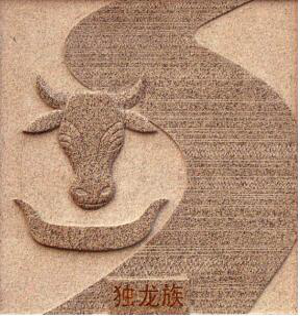 独龙族